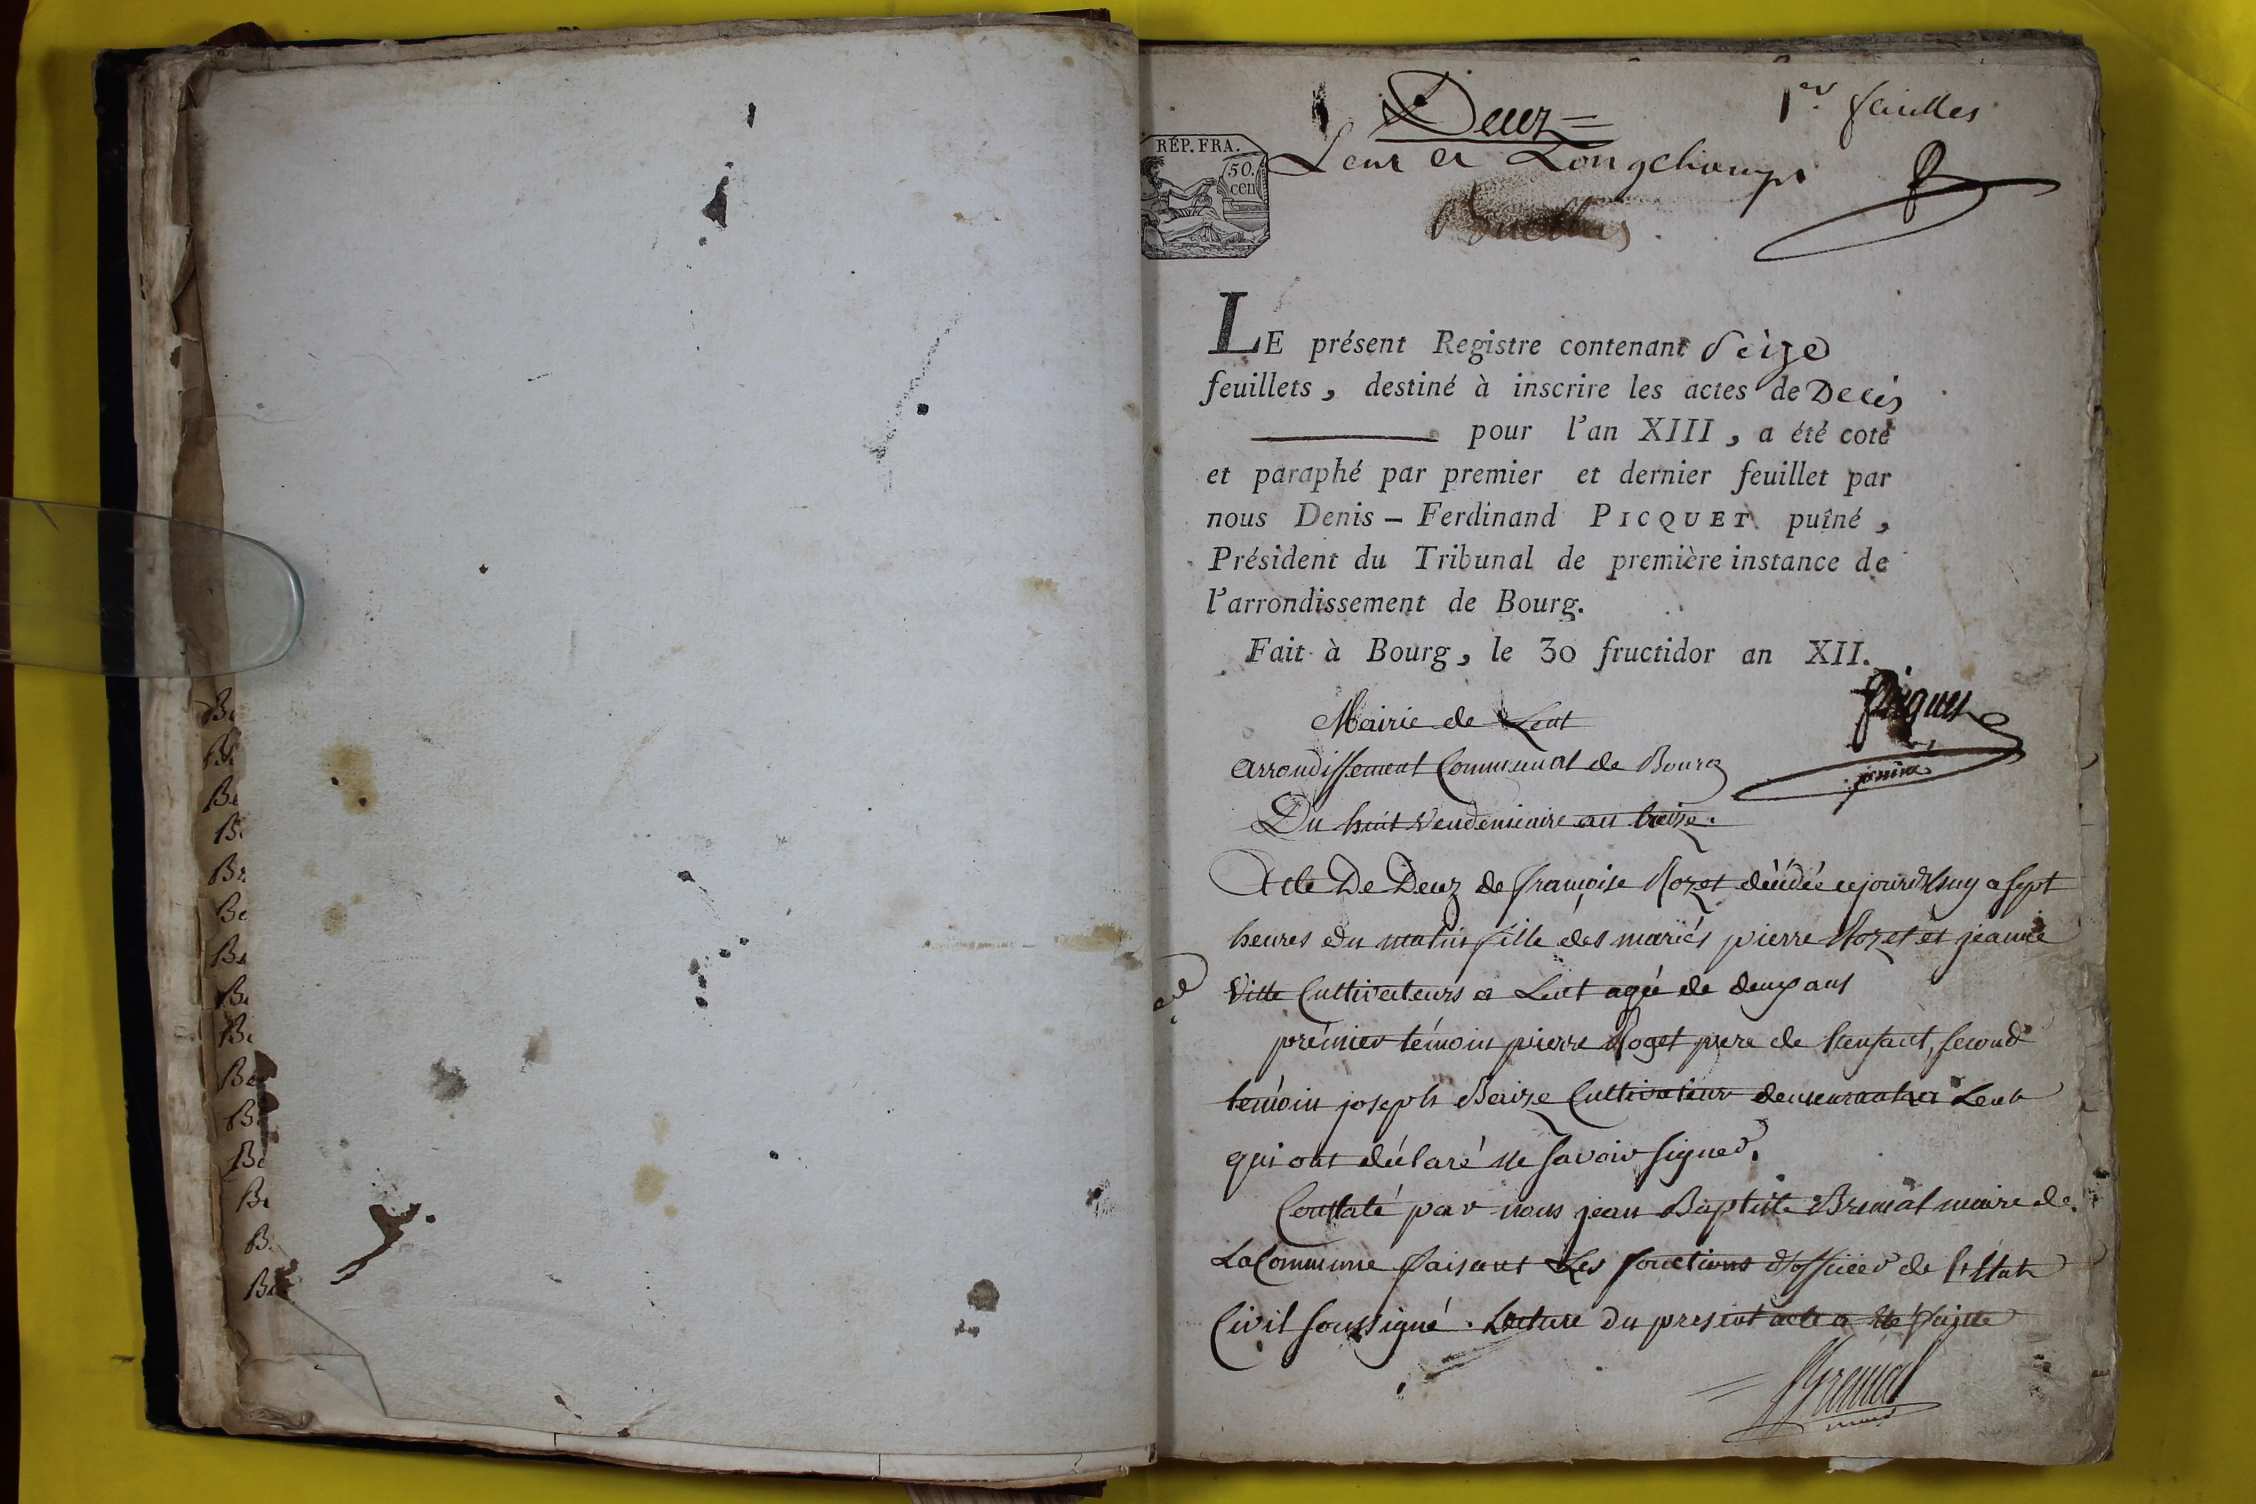 Deuz
1er feuillet
RÉP. FRA.
50.
cen
Lent et Longchamps
LE présent Registre contenant Seize
feuillets, destiné à inscrire les actes de Decès
pour l'an XIII, a été coté
et paraphé par premier et dernier feuillet par
nous Denis - Ferdinand PICQUET puîné,
Président du Tribunal de première instance de
l'arrondissement de Bourg.
Fait à Bourg, le 30 fructidor an XII.
Picquet
puiné
Mairie de Lent
arrondissement Communal de Bourg
Du huit Vendemiaire an treize.
Acte De Deuz de françoise Rozet décédée cejourd'huy a sept
heures du matin fille des mariés pierre Rozet et jeanne
Ville Cultivateurs a Lent agée de deux ans
prémier témoin pierre Roget pere de l'enfant, second
témoin joseph Cultivateur demeurant a Lent
qui ont déclaré ne savoir signer.
Constaté par nous jean Baptiste Bremal maire de
La Commune faisant Les fonctions d'officier de l'Etat
Civil soussigné. Lecture du present acte a été faitte
Bremal
maire
Be
Be
Be
Be
Be
Be
Be
Be
Be
Be
Be
Be
Be
B
Be